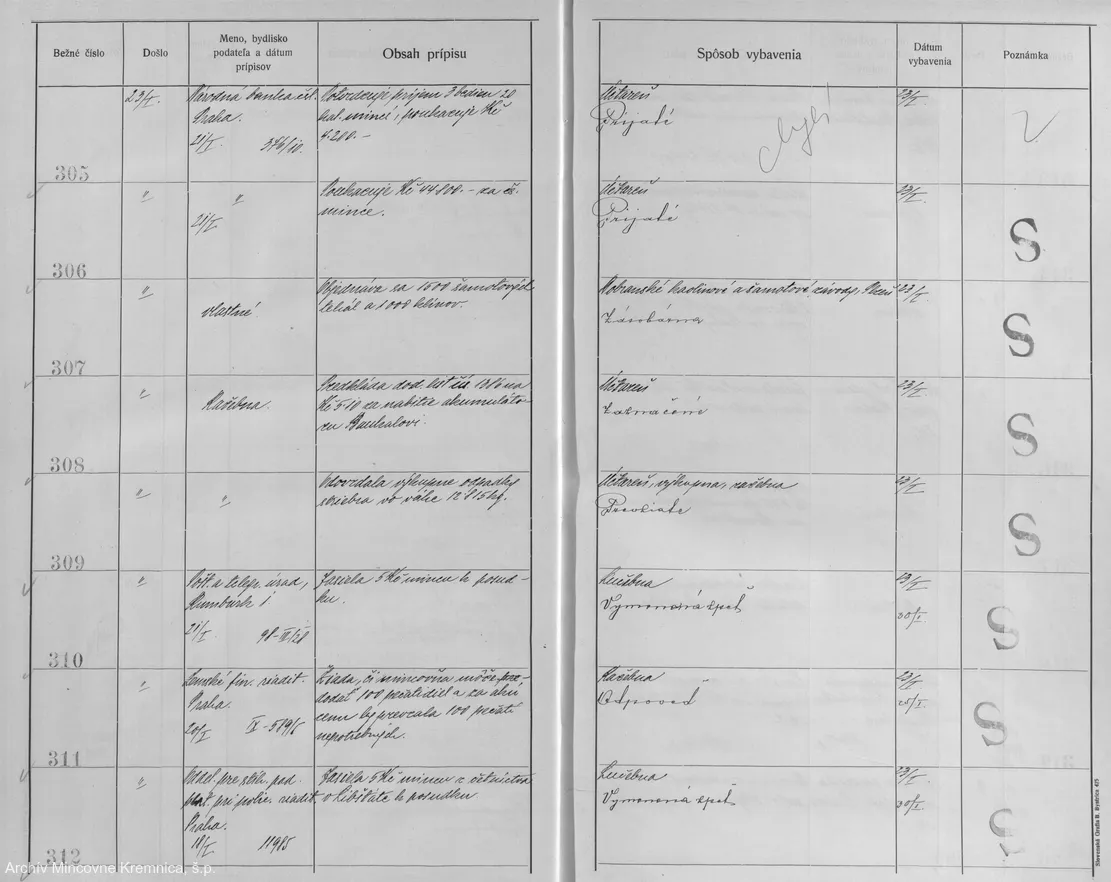 Bežné číslo
Došlo
Meno, bydlisko
podateľa a dátum
prípisov
Obsah prípisu
Spôsob vybavenia
Dátum
vybavenia
Poznámka
23/I.
Národná banka čsl.
Praha.
21/I. 376/10.
Potvrdzuje príjem 3 bedien 20
hal. mincí, poukazuje Kč
4.200.-
Účtareň
Prijaté
23/I.
305
"
"
21/I
Poukazuje Kč 44800.- za
mince.
Účtareň
Prijaté
23/I.
S
306
"
vlastné.
Objednáva sa 1500 šamotových
a 1000 klinov.
kaolinové a šamotové závody,
Zásobárna
23/I.
S
307
"
Razebna.
Predkladá dod. list čís 1316 na
Kč 5.10 za nabitie akumuláto-
ru
Účtareň
Zaznačené
23/I.
S
308
"
"
Odovzdala výkupne odpadky
striebra vo váhe 12.815 kg.
Účtareň, výkupna, razebna
Prevziate
23/I.
S
309
"
Pošt. a telegr. úrad,
Rumburk 1.
21/I 98-III/28
Zasiela 5 Kč mincu k posud-
ku.
Lučebna
Vymenená späť
23/I.
30/I.
S
310
"
Zemské fin. riadit.
Praha.
20/I IX-589/6
Žiada, či mincovňa môže
dodať 100 pečatidiel a za akú
cenu by prevzala 100 pečatí
nepotrebných.
Razebna
Odpoveď
23/I.
25/I.
S
311
"
pre stíh. pad.
plat. pri polic. riadit.
Praha.
18/I 11985
Zasiela 5 Kč mincu z četníctva
v Libštate k posudku
Lučebna
Vymenená späť
23/I.
30/I.
S
312
Slovenská Grafia B. Bystrica 475
Archív Mincovne Kremnica, š.p.